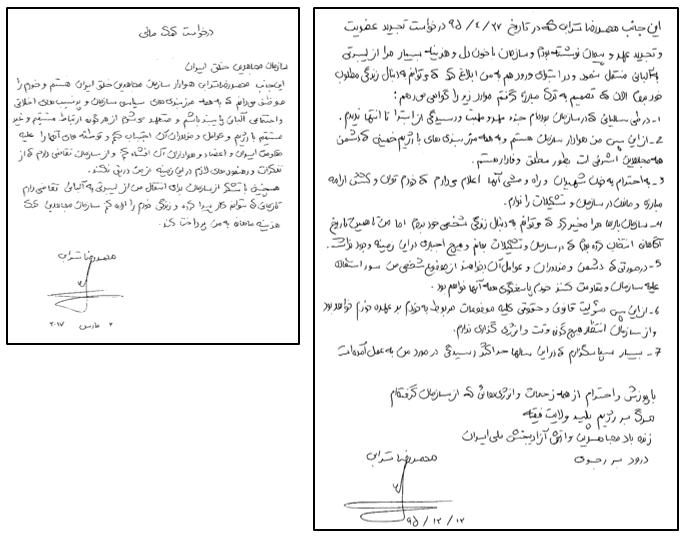 درخواست کمک مالی
سازمان مجاهدین خلق ایران
این جانب محمدرضا ترابی هوادار سازمان مجاهدین خلق ایران هستم و خودم را
موظف میدانم که به همه مرزبندی های سیاسی سازمان و پرنسیب های اخلاقی
واجتماعی آلبانی پایبند باشم و متعهد میشوم از هرگونه ارتباط مستقیم و غیر
مستقیم با رژیم و عوامل و مزدوران آن اجتناب کنم و توطئه های آنها را علیه
مقاومت ایران و اعضاء و هواداران آن افشاء کنم و از سازمان تقاضا دارم که از
تذکرات و رهنمودهای لازم در این زمینه از من دریغ نکند.
همچنین با تشکر از سازمان برای انتقال من از لیبرتی به آلبانی تقاضا دارم
تا زمانی که بتوانم کار پیدا کرده و زندگی خودم را اداره کنم سازمان مجاهدین کمک
هزینه ماهانه به من پرداخت کند.
محمدرضا ترابی
۲ مارس ۲۰۱۷
این جانب محمدرضا ترابی که در تاریخ ۹۵/۴/۲۷ درخواست تجدید عضویت
و تجدید عهد و پیمان نوشته بودم و سازمان با خون دل و هزینه بسیار مرا از لیبرتی
به آلبانی منتقل نمود و در ابتدای ورود هم به من ابلاغ کرد که میتوانم به دنبال زندگی مطلوب
خود بروم الان که تصمیم به ترک مبارزه گرفتم موارد زیر را گواهی میدهم:
۱- در طی سالهایی که در سازمان بودم جزء مهر و محبت و رسیدگی از ابتدا تا انتها ندیدم.
۲- از این پس من هوادار سازمان هستم و به همه مرزبندی های با رژیم خمینی که دشمن
همه مجاهدین اشرفی است بطور مطلق وفادار هستم.
۳- به احترام به خون شهیدان و راه و مشی آنها اعلام میدارم که خودم توان و کشش ادامه
مبارزه و ماندن در سازمان و تشکیلات را ندارم.
۴- سازمان بارها مرا مخیر کرد که میتوانم به دنبال زندگی شخصی خود بروم اما من تا همین تاریخ
آگاهانه انتخاب کرده بودم که در سازمان و تشکیلات بمانم و هیچ اجباری در این زمینه وجود نداشت.
۵- در صورتی که دشمن و مزدوران و عوامل آن بخواهند از موضوع شخصی من سوء استفاده
علیه سازمان و مقاومت کنند خودم پاسخگوی همه آنها خواهم بود.
۶- از این پس مسئولیت قانونی و حقوقی کلیه موضوعات مربوط به خودم بر عهده خودم خواهد بود
و از سازمان انتظار هیچ گونه وقت و انرژی گذاری ندارم.
۷- بسیار سپاسگزارم که در این سالها حداکثر رسیدگی در مورد من به عمل آمده است
با پوزش و احترام از همه زحمات و انرژی هائی که از سازمان گرفته ام
مرگ بر رژیم پلید ولایت فقیه
زنده باد مجاهدین و ارتش آزادیبخش ملی ایران
درود بر رجوی
محمدرضا ترابی
۹۵/۱۲/۱۲